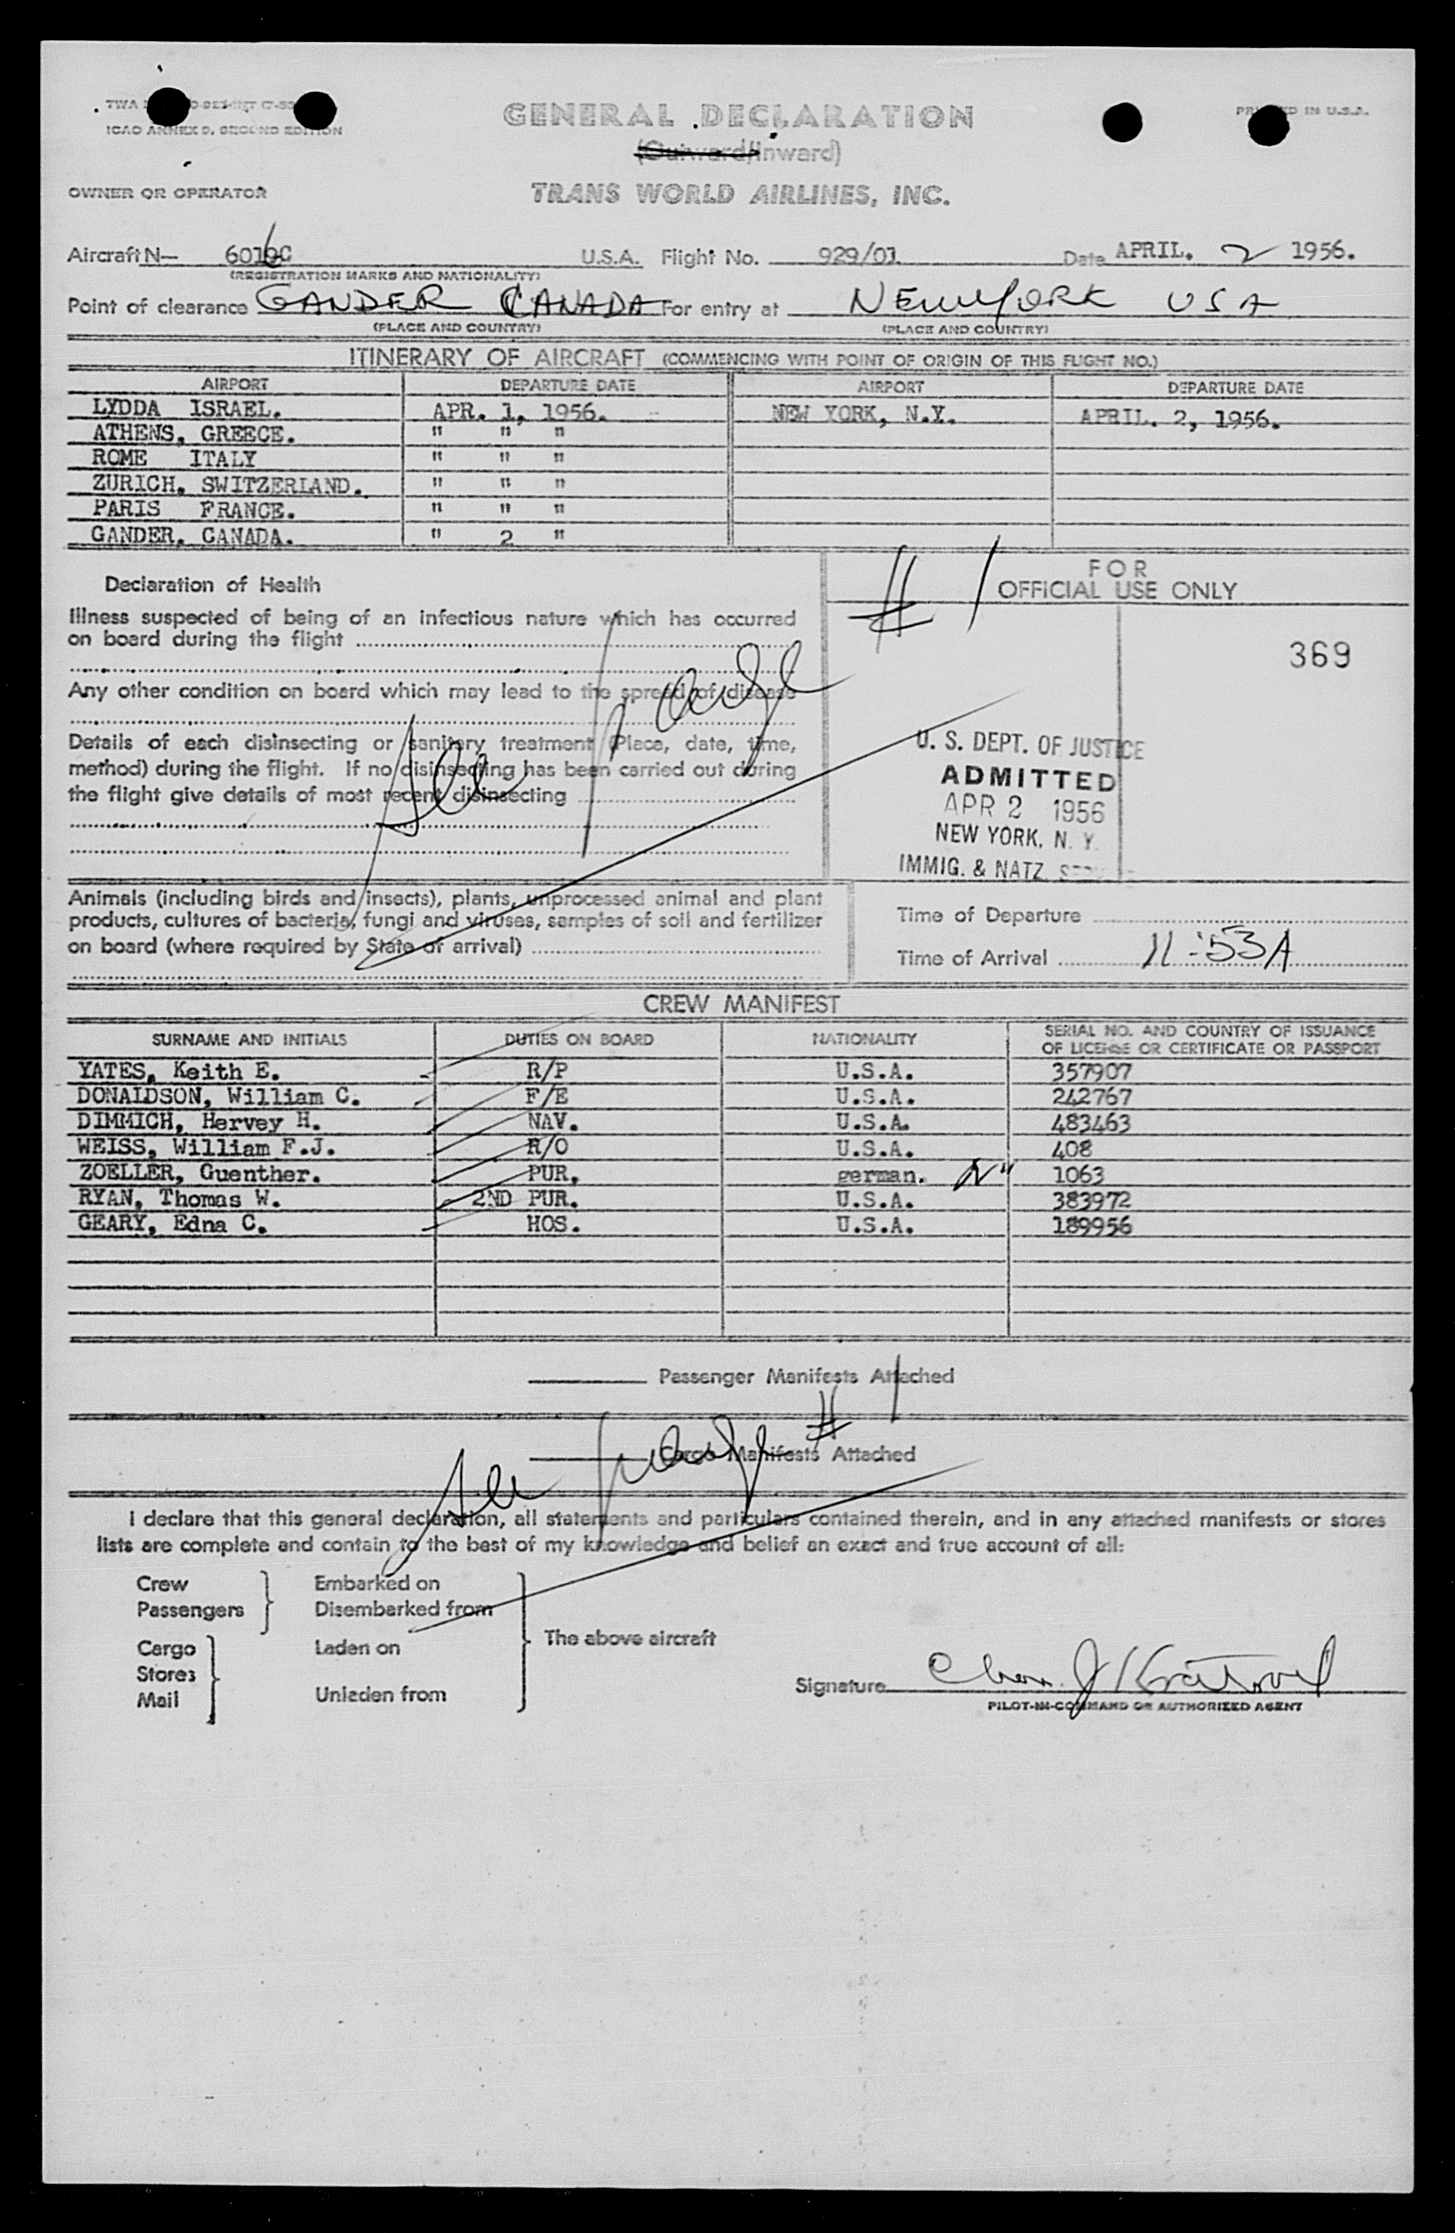 GENERAL DECLARATION
(Outward/Inward)
ICAO ANNEX 9, SECOND EDITION
PRINTED IN U.S.A.
OWNER OR OPERATOR TRANS WORLD AIRLINES, INC.
Aircraft N— 6016C U.S.A. Flight No. 929/01 Date APRIL. 2 1956.
(REGISTRATION MARKS AND NATIONALITY)
Point of clearance GANDER CANADA For entry at NEW YORK USA
(PLACE AND COUNTRY) (PLACE AND COUNTRY)
ITINERARY OF AIRCRAFT (COMMENCING WITH POINT OF ORIGIN OF THIS FLIGHT NO.)
AIRPORT DEPARTURE DATE AIRPORT DEPARTURE DATE
LYDDA ISRAEL. APR. 1, 1956. NEW YORK, N.Y. APRIL. 2, 1956.
ATHENS, GREECE. " " "
ROME ITALY " " "
ZURICH. SWITZERLAND. " " "
PARIS FRANCE. " " "
GANDER. CANADA. " 2 "
Declaration of Health
Illness suspected of being of an infectious nature which has occurred
on board during the flight
Any other condition on board which may lead to the spread of disease
Details of each disinsecting or sanitary treatment (Place, date, time,
method) during the flight. If no disinsecting has been carried out during
the flight give details of most recent disinsecting
See page # 1
FOR
OFFICIAL USE ONLY
369
U. S. DEPT. OF JUSTICE
ADMITTED
APR 2 1956
NEW YORK, N. Y.
IMMIG. & NATZ. SERVICE
Animals (including birds and insects), plants, unprocessed animal and plant
products, cultures of bacteria, fungi and viruses, samples of soil and fertilizer
on board (where required by State of arrival)
Time of Departure
Time of Arrival 11:53A
CREW MANIFEST
SURNAME AND INITIALS DUTIES ON BOARD NATIONALITY SERIAL NO. AND COUNTRY OF ISSUANCE
OF LICENSE OR CERTIFICATE OR PASSPORT
YATES, Keith E. R/P U.S.A. 357907
DONALDSON, William C. F/E U.S.A. 242767
DIMMICH, Hervey H. NAV. U.S.A. 483463
WEISS, William F.J. R/O U.S.A. 408
ZOELLER, Guenther. PUR. german. 1063
RYAN, Thomas W. 2ND PUR. U.S.A. 383972
GEARY, Edna C. HOS. U.S.A. 189956
Passenger Manifests Attached
Cargo Manifests Attached
See page # 1
I declare that this general declaration, all statements and particulars contained therein, and in any attached manifests or stores
lists are complete and contain to the best of my knowledge and belief an exact and true account of all:
Crew Embarked on
Passengers Disembarked from
The above aircraft
Cargo Laden on
Stores
Mail Unladen from
Signature
PILOT-IN-COMMAND OR AUTHORIZED AGENT